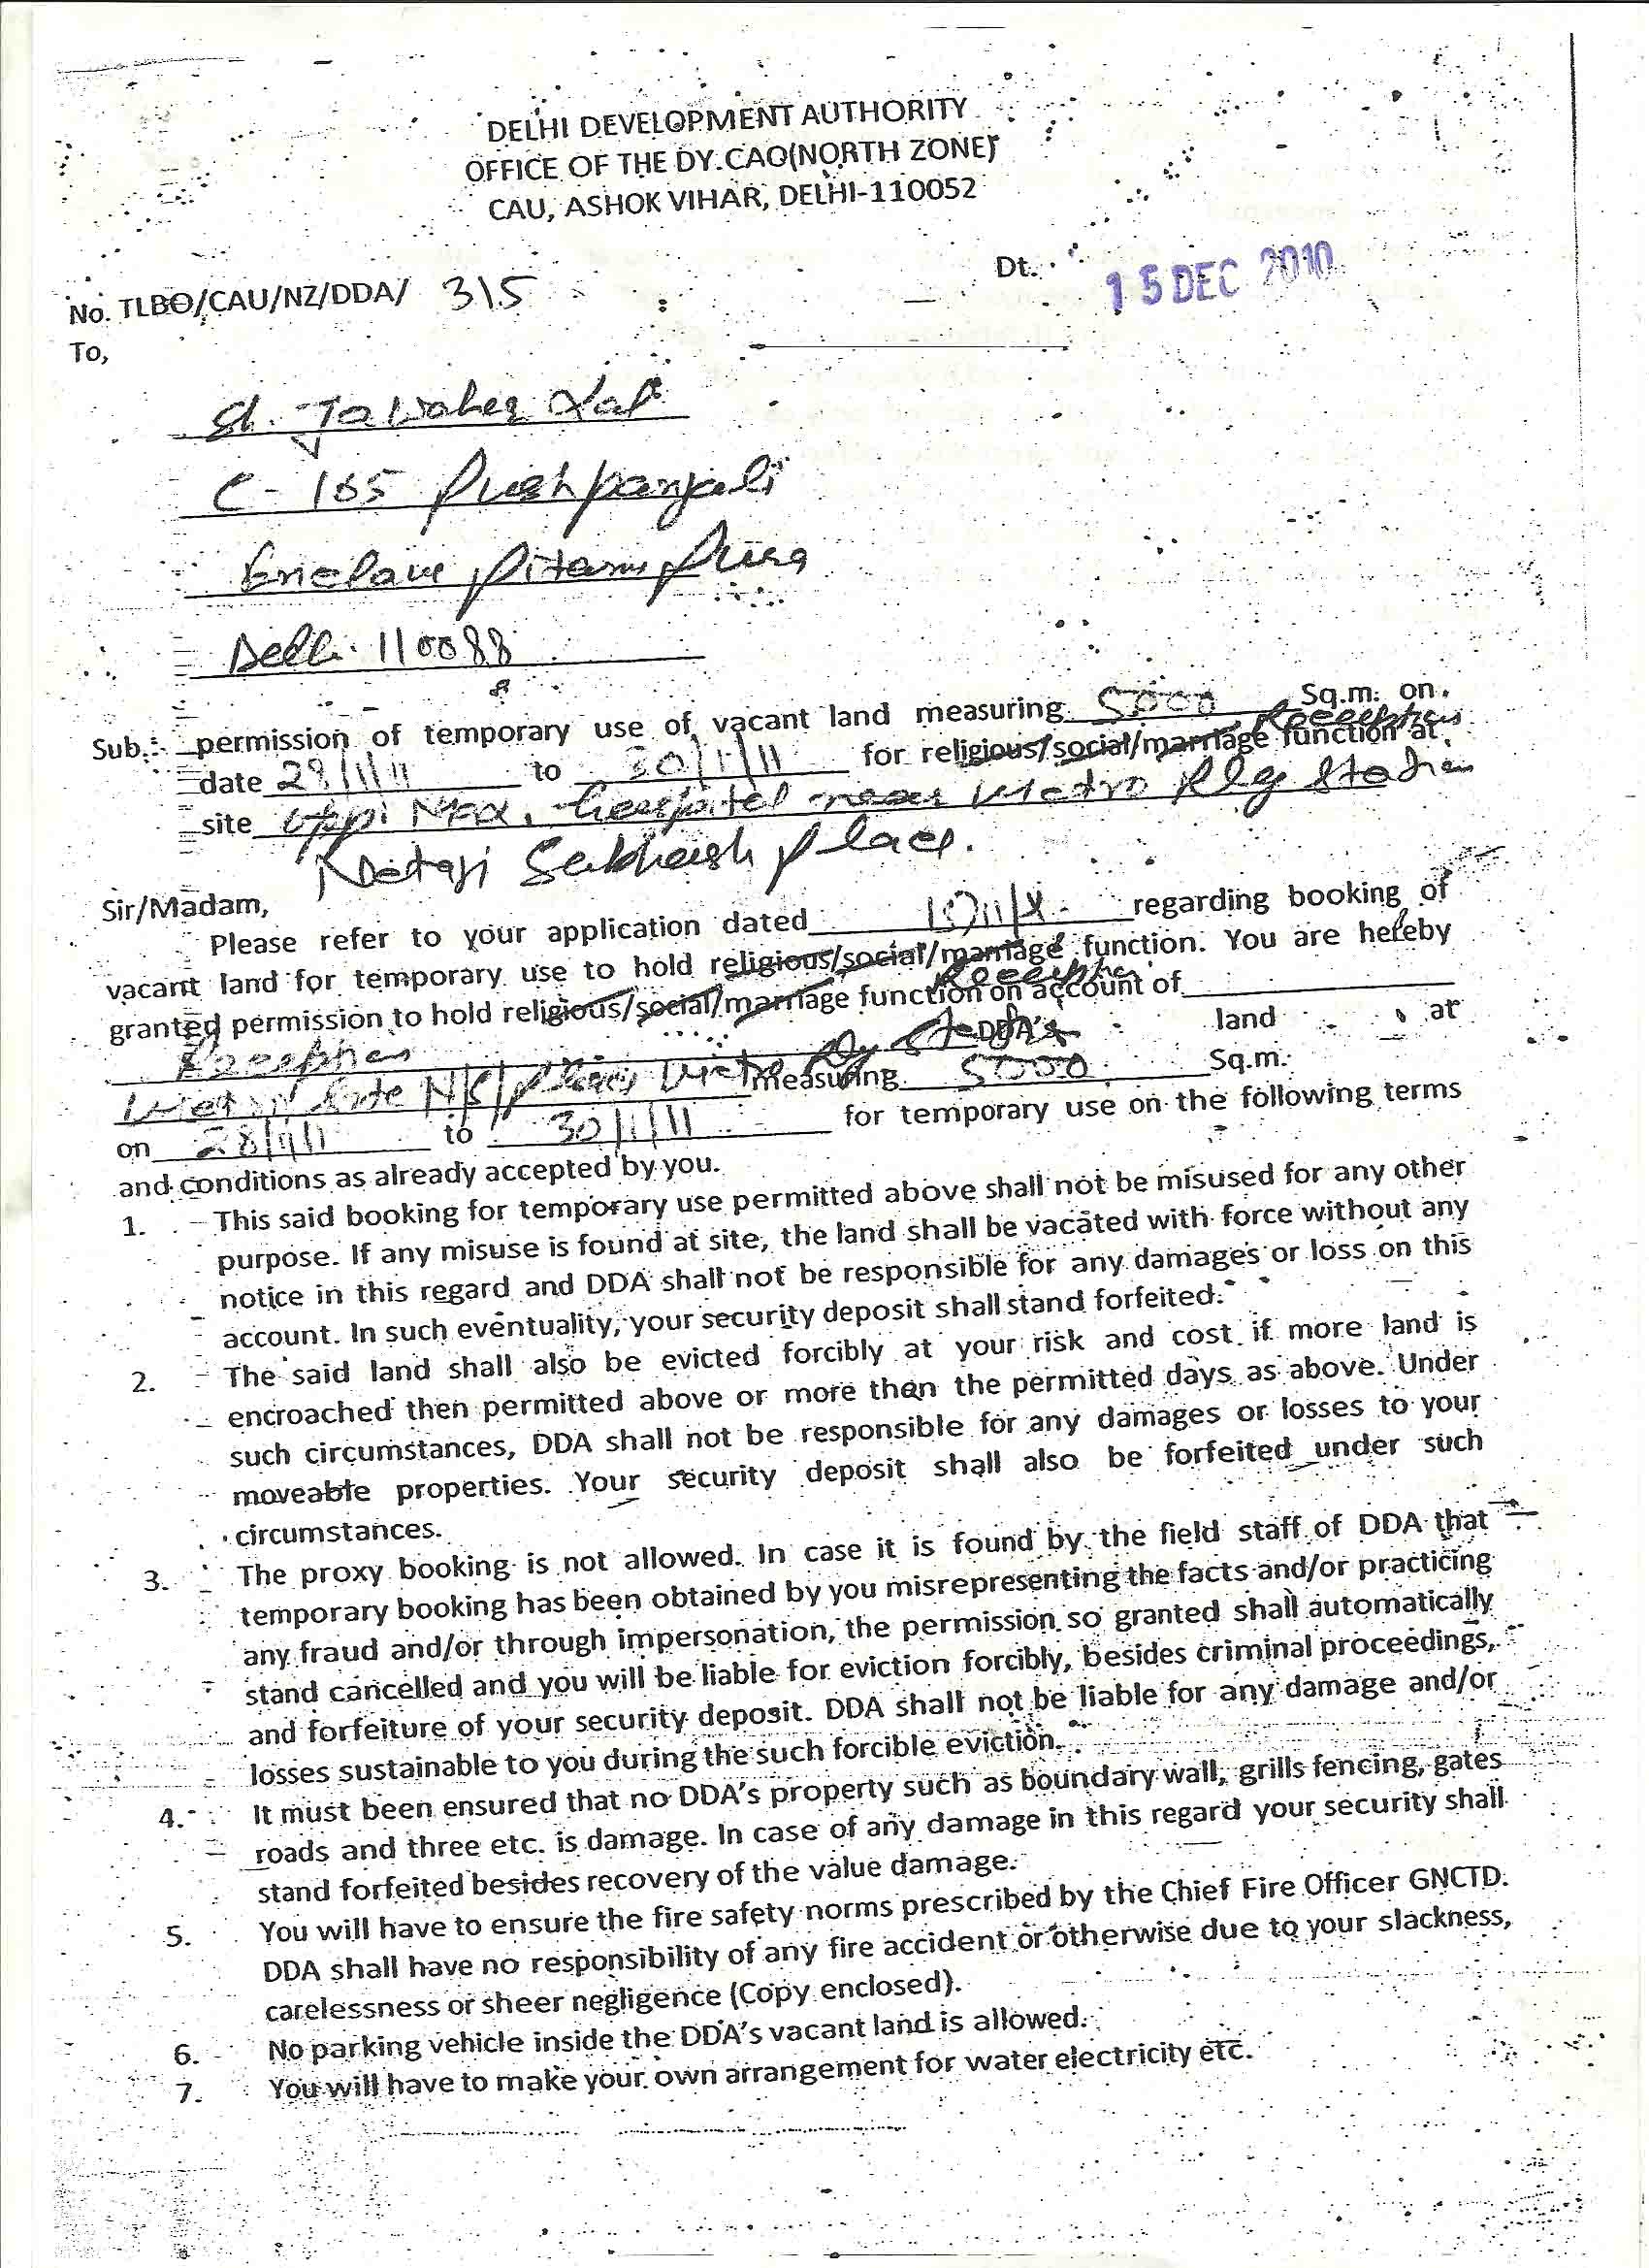 DELHI DEVELOPMENT AUTHORITY
OFFICE OF THE DY.CAO(NORTH ZONE)
CAU, ASHOK VIHAR, DELHI-110052
Dt. 15 DEC 2010
No. TLBO/CAU/NZ/DDA/ 315
To,
Sh. Jawaher Lal
C-165 Pushpanjali
Enclave Pitam Pura
Delhi 110088
Sub.: permission of temporary use of vacant land measuring 5000 Sq.m. on
Reception
date 28/1/11 to 30/1/11 for religious/social/marriage function at
site opp. Max. Hospital near Metro Rly Station
Netaji Subhash place.
Sir/Madam,
Please refer to your application dated regarding booking of
vacant land for temporary use to hold religious/social/marriage function. You are hereby
Reception
granted permission to hold religious/social/marriage function on account of
Reception DDA's land at
Metro Site N/S/place Metro Rly Station measuring 5000 Sq.m.
on 28/1/11 to 30/1/11 for temporary use on the following terms
and conditions as already accepted by you.
1. This said booking for temporary use permitted above shall not be misused for any other
purpose. If any misuse is found at site, the land shall be vacated with force without any
notice in this regard and DDA shall not be responsible for any damages or loss on this
account. In such eventuality, your security deposit shall stand forfeited.
2. The said land shall also be evicted forcibly at your risk and cost if more land is
encroached then permitted above or more then the permitted days as above. Under
such circumstances, DDA shall not be responsible for any damages or losses to your
moveable properties. Your security deposit shall also be forfeited under such
circumstances.
3. The proxy booking is not allowed. In case it is found by the field staff of DDA that
temporary booking has been obtained by you misrepresenting the facts and/or practicing
any fraud and/or through impersonation, the permission so granted shall automatically
stand cancelled and you will be liable for eviction forcibly, besides criminal proceedings,
and forfeiture of your security deposit. DDA shall not be liable for any damage and/or
losses sustainable to you during the such forcible eviction.
4. It must been ensured that no DDA's property such as boundary wall, grills fencing, gates
roads and three etc. is damage. In case of any damage in this regard your security shall
stand forfeited besides recovery of the value damage.
5. You will have to ensure the fire safety norms prescribed by the Chief Fire Officer GNCTD.
DDA shall have no responsibility of any fire accident or otherwise due to your slackness,
carelessness or sheer negligence (Copy enclosed).
6. No parking vehicle inside the DDA's vacant land is allowed.
7. You will have to make your own arrangement for water electricity etc.